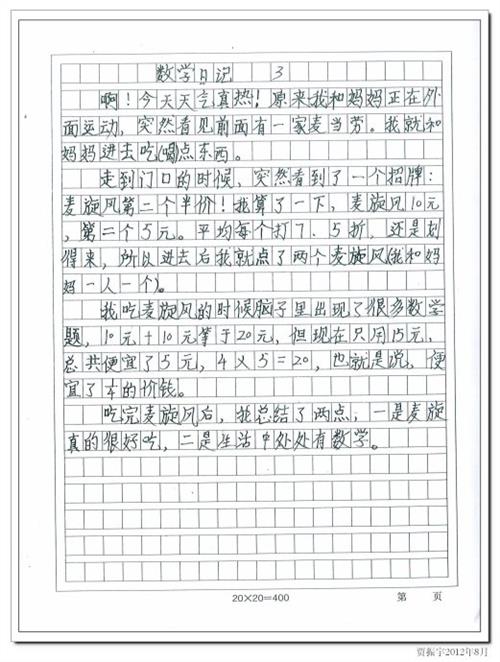 数学日记 3
啊！今天天气真热！原来我和妈妈正在外
面运动，突然看见前面有一家麦当劳。我就和
妈妈进去吃(喝)点东西。
走到门口的时候，突然看到了一个招牌：
麦旋风第二个半价！我算了一下，麦旋风10元
，第二个5元。平均每个打7．5折，还是划
得来，所以进去后我就点了两个麦旋风(我和妈
妈一人一个)。
我吃麦旋风的时候脑子里出现了很多数学
题，10元+10元等于20元，但现在只用15元，
总共便宜了5元，4×5=20，也就是说，便
宜了¼的价钱。
吃完麦旋风后，我总结了两点，一是麦旋
真的很好吃，二是生活中处处有数学。
20×20=400 第 页
贾振宇2012年8月